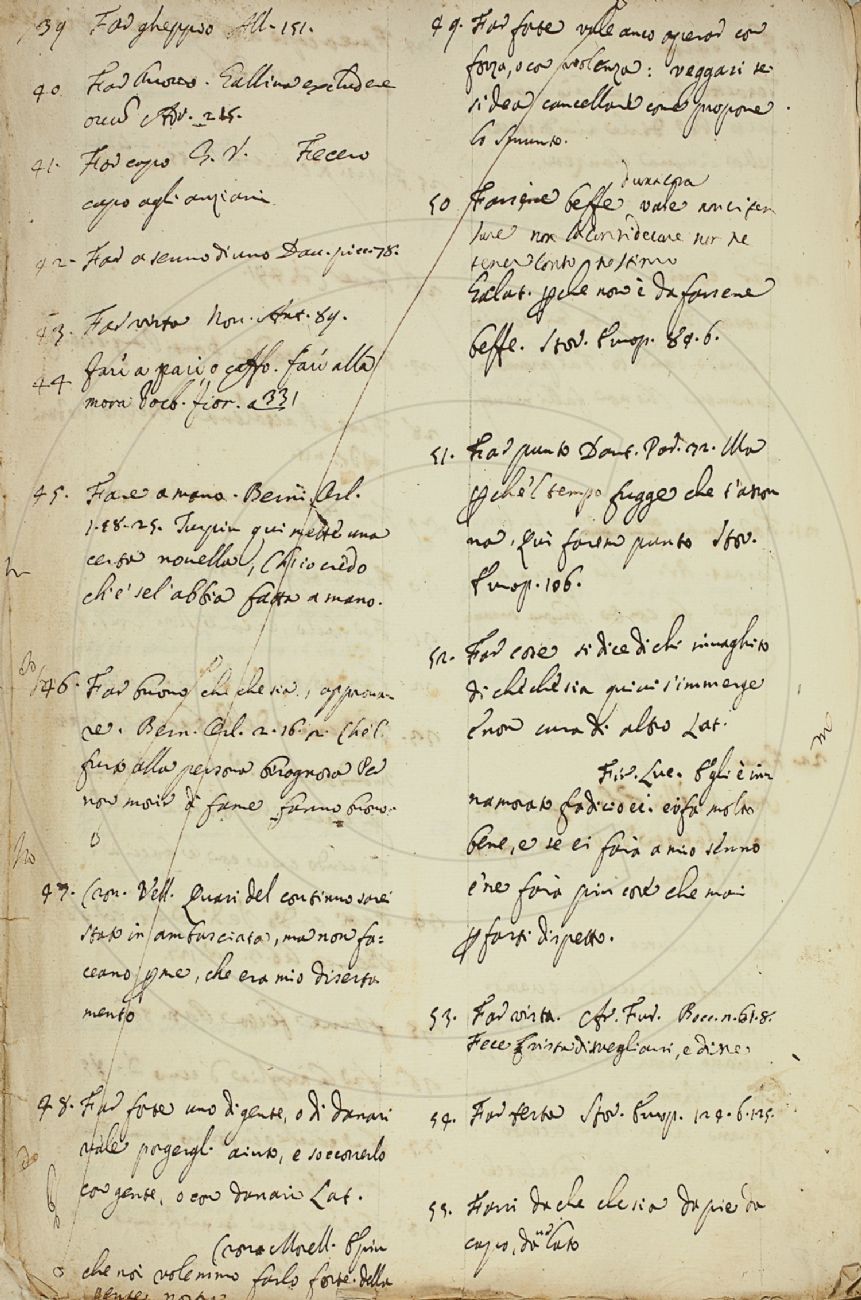 39 Far gheppio All. 151.
40 Far Gallina
215.
41. Far capo G. V. Fecero
capo agli anziani
42. Far a senno di uno Dav. 78.
43. Far vista Nov. Ant. 89.
44 fari a pari, o caffo. fari alla
mora Boc. fior. a 331
45. Fare a mano. Bern. Orl.
1. 18. 25. Turpin qui mette una
certa novella, Ch'io credo
ch'e' se l'abbia fatta a mano.
46. Far buono che che sia, approva-
re. Bern. Orl. 2. 16. Che'l
furto alla persona bisognosa Per
non morir di fame fanno buono.
47. Cron. Vell. Quasi del continuo sarei
stato in ambasciata, ma non fa=
ceano p me, che era mio diserta
mento
48. Far forte uno di gente, o di danari
vale porgergli aiuto, e soccorrerlo
con gente, o con danari Lat.
Cron. Morell.
che noi volemmo farlo forte della
gente nostra
49. Far forte vale anco operar con
forza, o con violenza: veggasi se
si dea cancellare come propone
lo Spunto.
50 Farsene beffe d'una cosa vale
non ne
tener conto
Galat. pche non è da farsene
beffe. Stor. Europ. 89. 6.
51. Far punto Dant. Par. 32. Ma
pche'l tempo fugge che t'asson
na, Qui farem punto Stor.
Europ. 106.
52. Far core si dice di chi invaghito
di che che sia quivi s'immerge
e non cura di altro Lat.
Fir. Luc. Egli è inn
namorato fradicio ei. e' fa molto
bene, e se ei farà a mio senno
e' ne farà più core che mai
p farti dispetto.
53. Far vista. Ar. Fur. Bocc. n. 61. 8.
Fece vista di svegliarsi, e disse
54. Far testa Stor. Europ. 124. 6. 125.
55. Farsi da che che sia da pie da
capo, da un lato